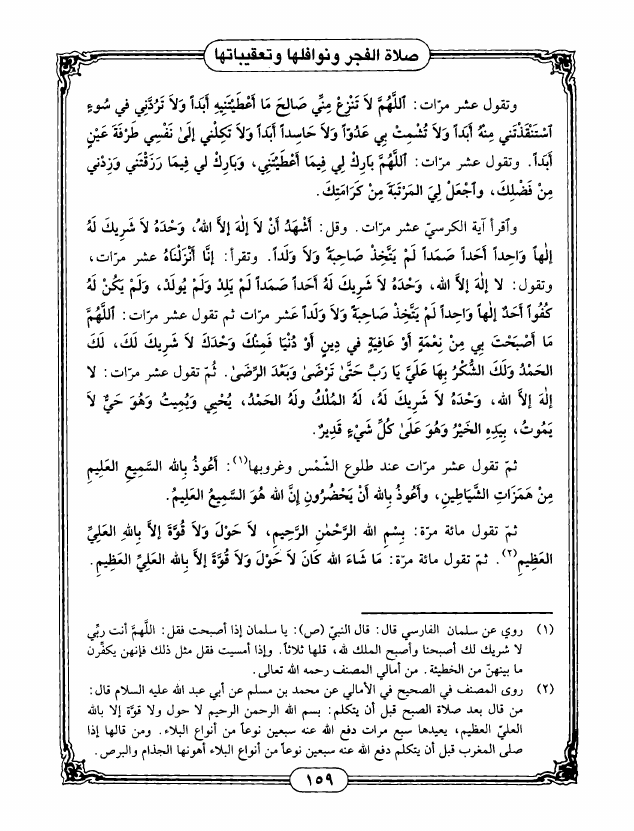 صلاة الفجر ونوافلها وتعقيباتها
وتقول عشر مرّات: اَللَّهُمَّ لاَ تَنْزِعْ مِنِّي صَالِحَ مَا أَعْطَيْتَنِيهِ أَبَداً وَلاَ تَرُدَّنِي في سُوءٍ
اَسْتَنْقَذْتَني مِنْهُ أَبَداً وَلاَ تُشْمِتْ بِي عَدُوّاً وَلاَ حَاسِداً أَبَداً وَلاَ تَكِلْني إلَىٰ نَفْسِي طَرْفَةَ عَيْنٍ
أَبَداً. وتقول عشر مرّات: اَللَّهُمَّ بَارِكْ لِي فِيمَا أَعْطَيْتَنِي، وَبَارِكْ لي فِيمَا رَزَقْتَني وَزِدْني
مِنْ فَضْلِكَ، وَاَجْعَلْ لِيَ المَرْتَبَةَ مِنْ كَرَامَتِكَ.
وٱقرأ آية الكرسيّ عشر مرّات. وقل: أَشْهَدُ أَنْ لاَ إلٰهَ إلاَّ اللهُ، وَحْدَهُ لاَ شَرِيكَ لَهُ
إلٰهاً وَاحِداً أَحَداً صَمَداً لَمْ يَتَّخِذْ صَاحِبَةً وَلاَ وَلَداً. وتقرأ: إنَّا أَنْزَلْنَاهُ عشر مرّات،
وتقول: لا إلٰهَ إلاَّ الله، وَحْدَهُ لاَ شَرِيكَ لَهُ أَحَداً صَمَداً لَمْ يَلِدْ وَلَمْ يُولَدْ، وَلَمْ يَكُنْ لَهُ
كُفُواً أَحَدٌ إلٰهاً وَاحِداً لَمْ يَتَّخِذْ صَاحِبَةً وَلاَ وَلَداً عَشر مرّات ثم تقول عشر مرّات: اَللَّهُمَّ
مَا أَصْبَحَتْ بِي مِنْ نِعْمَةٍ أَوْ عَافِيَةٍ في دِينٍ أَوْ دُنْيَا فَمِنْكَ وَحْدَكَ لاَ شَرِيكَ لَكَ، لَكَ
الحَمْدُ وَلَكَ الشُّكْرُ بِهَا عَلَيَّ يَا رَبِّ حَتَّىٰ تَرْضَىٰ وَبَعْدَ الرِّضَىٰ. ثُمّ تقول عشر مرّات: لا
إلٰهَ إلاَّ الله، وَحْدَهُ لاَ شَرِيكَ لَهُ، لَهُ المُلْكُ ولَهُ الحَمْدُ، يُحْيِي وَيُمِيتُ وَهُوَ حَيٌّ لاَ
يَمُوتُ، بِيَدِهِ الخَيْرُ وَهُوَ عَلَىٰ كُلِّ شَيْءٍ قَدِيرٌ.
ثمّ تقول عشر مرّات عند طلوع الشَّمْس وغروبها(١): أَعُوذُ بِالله السَّمِيعِ العَلِيمِ
مِنْ هَمَزَاتِ الشَّيَاطِينِ، وَأَعُوذُ بِالله أَنْ يَحْضُرُونِ إنَّ الله هُوَ السَّمِيعُ العَلِيمُ.
ثمّ تقول مائة مرّة: بِسْمِ الله الرَّحْمٰنِ الرَّحِيمِ، لاَ حَوْلَ وَلاَ قُوَّةَ إلاَّ بِاللهِ العَلِيِّ
العَظِيمِ(٢). ثمّ تقول مائة مرّة: مَا شَاءَ الله كَانَ لاَ حَوْلَ وَلاَ قُوَّةَ إلاَّ بِالله العَلِيِّ العَظِيمِ.
(١) روي عن سلمان الفارسي قال: قال النبيّ (ص): يا سلمان إذا أصبحت فقل: اللَّهمَّ أنت ربّي
لا شريك لك أصبحنا وأصبح الملك لله، قلها ثلاثاً. وإذا أمسيت فقل مثل ذلك فإنهن يكفّرن
ما بينهنّ من الخطيئة. من أمالي المصنف رحمه الله تعالى.
(٢) روى المصنف في الصحيح في الأمالي عن محمد بن مسلم عن أبي عبد الله عليه السلام قال:
من قال بعد صلاة الصبح قبل أن يتكلم: بسم الله الرحمن الرحيم لا حول ولا قوة إلا بالله
العليّ العظيم، يعيدها سبع مرات دفع الله عنه سبعين نوعاً من أنواع البلاء. ومن قالها إذا
صلى المغرب قبل أن يتكلم دفع الله عنه سبعين نوعاً من أنواع البلاء أهونها الجذام والبرص.
١٥٩